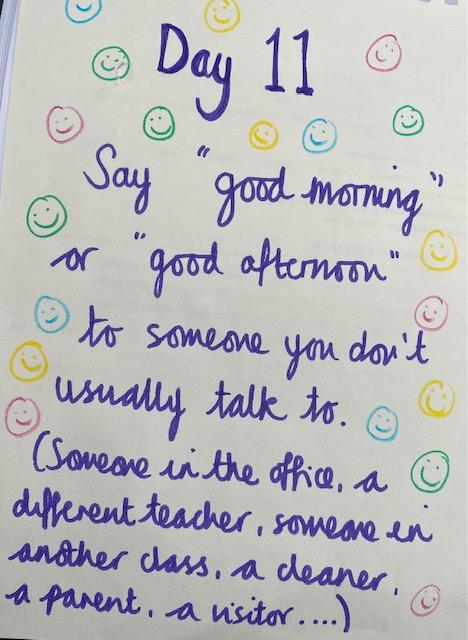 Day 11
Say "good morning"
or "good afternoon"
to someone you don't
usually talk to.
(Someone in the office, a
different teacher, someone in
another class, a cleaner,
a parent, a visitor....)